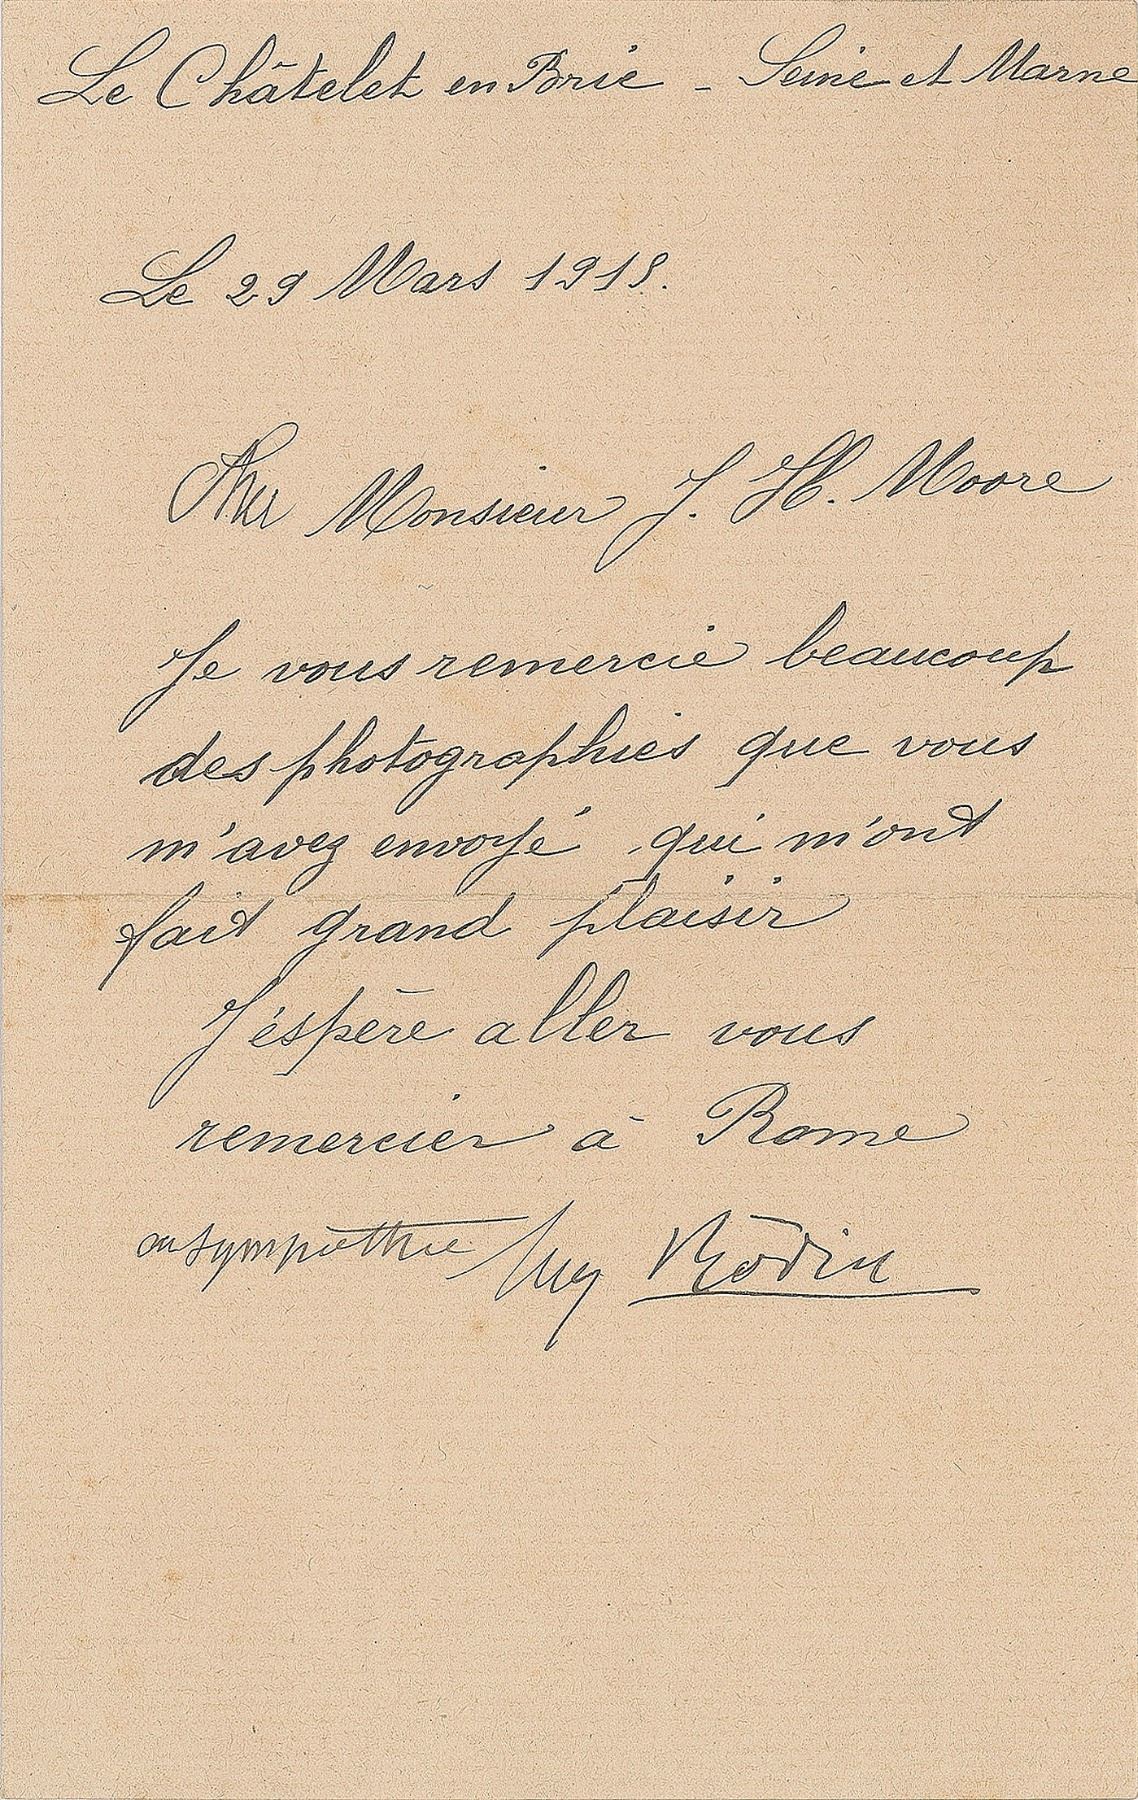 Le Châtelet en Brie - Seine et Marne
Le 29 Mars 1915.
Cher Monsieur J. H. Moore
Je vous remercie beaucoup
des photographies que vous
m'avez envoyé qui m'ont
fait grand plaisir
J'éspère aller vous
remercier à Rome
en sympathie Aug Rodin